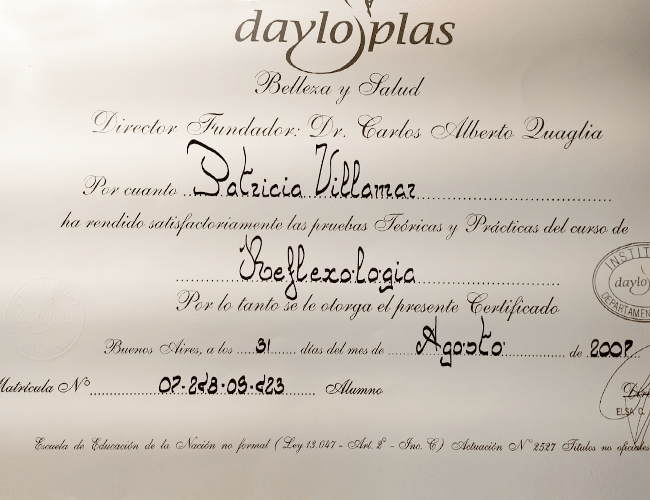 dayloplas
Belleza y Salud
Director Fundador: Dr. Carlos Alberto Quaglia
Por cuanto Patricia Villamar
ha rendido satisfactoriamente las pruebas Teóricas y Prácticas del curso de
Reflexología
Por lo tanto se le otorga el presente Certificado
Buenos Aires, a los 31 días del mes de Agosto de 2007
Matrícula Nº Alumno
Escuela de Educación de la Nación no formal (Ley 13.047 - Art. 2º - Inc. C) Actuación Nº 2527 Títulos no oficiales
INSTIT
daylo
DEPARTAMEN
ELSA C.